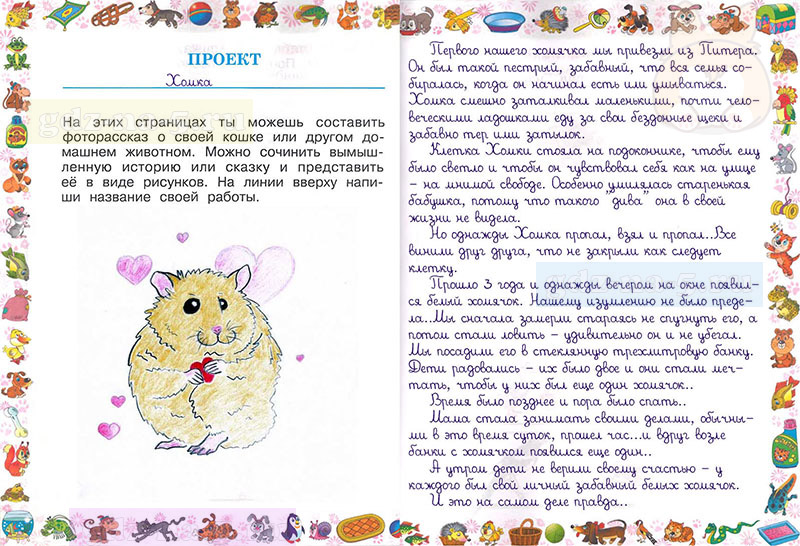 ПРОЕКТ
Хомка
На этих страницах ты можешь составить
фоторассказ о своей кошке или другом до-
машнем животном. Можно сочинить вымыш-
ленную историю или сказку и представить
её в виде рисунков. На линии вверху напи-
ши название своей работы.
Первого нашего хомячка мы привезли из Питера.
Он был такой пестрый, забавный, что вся семья со-
биралась, когда он начинал есть или умываться.
Хомка смешно заталкивал маленькими, почти чело-
веческими ладошками еду за свои бездонные щеки и
забавно тер или затылок.
Клетка Хомки стояла на подоконнике, чтобы ему
было светло и чтобы он чувствовал себя как на улице
- на мнимой свободе. Особенно умилялась старенькая
бабушка, потому что такого "дива" она в своей
жизни не видела.
Но однажды Хомка пропал, взял и пропал...Все
винили друг друга, что не закрыли как следует
клетку.
Прошло 3 года и однажды вечером на окне появил-
ся белый хомячок. Нашему изумлению не было преде-
ла...Мы сначала замерли стараясь не спугнуть его, а
потом стали ловить - удивительно он и не убегал.
Мы посадили его в стеклянную трехлитровую банку.
Дети радовались - их было двое и они стали меч-
тать, чтобы у них был еще один хомячок..
Время было позднее и пора было спать..
Мама стала занимать своими делами, обычны-
ми в это время суток, прошел час...и вдруг возле
банки с хомячком появился еще один..
А утром дети не верили своему счастью - у
каждого был свой личный забавный белых хомячок.
И это на самом деле правда..